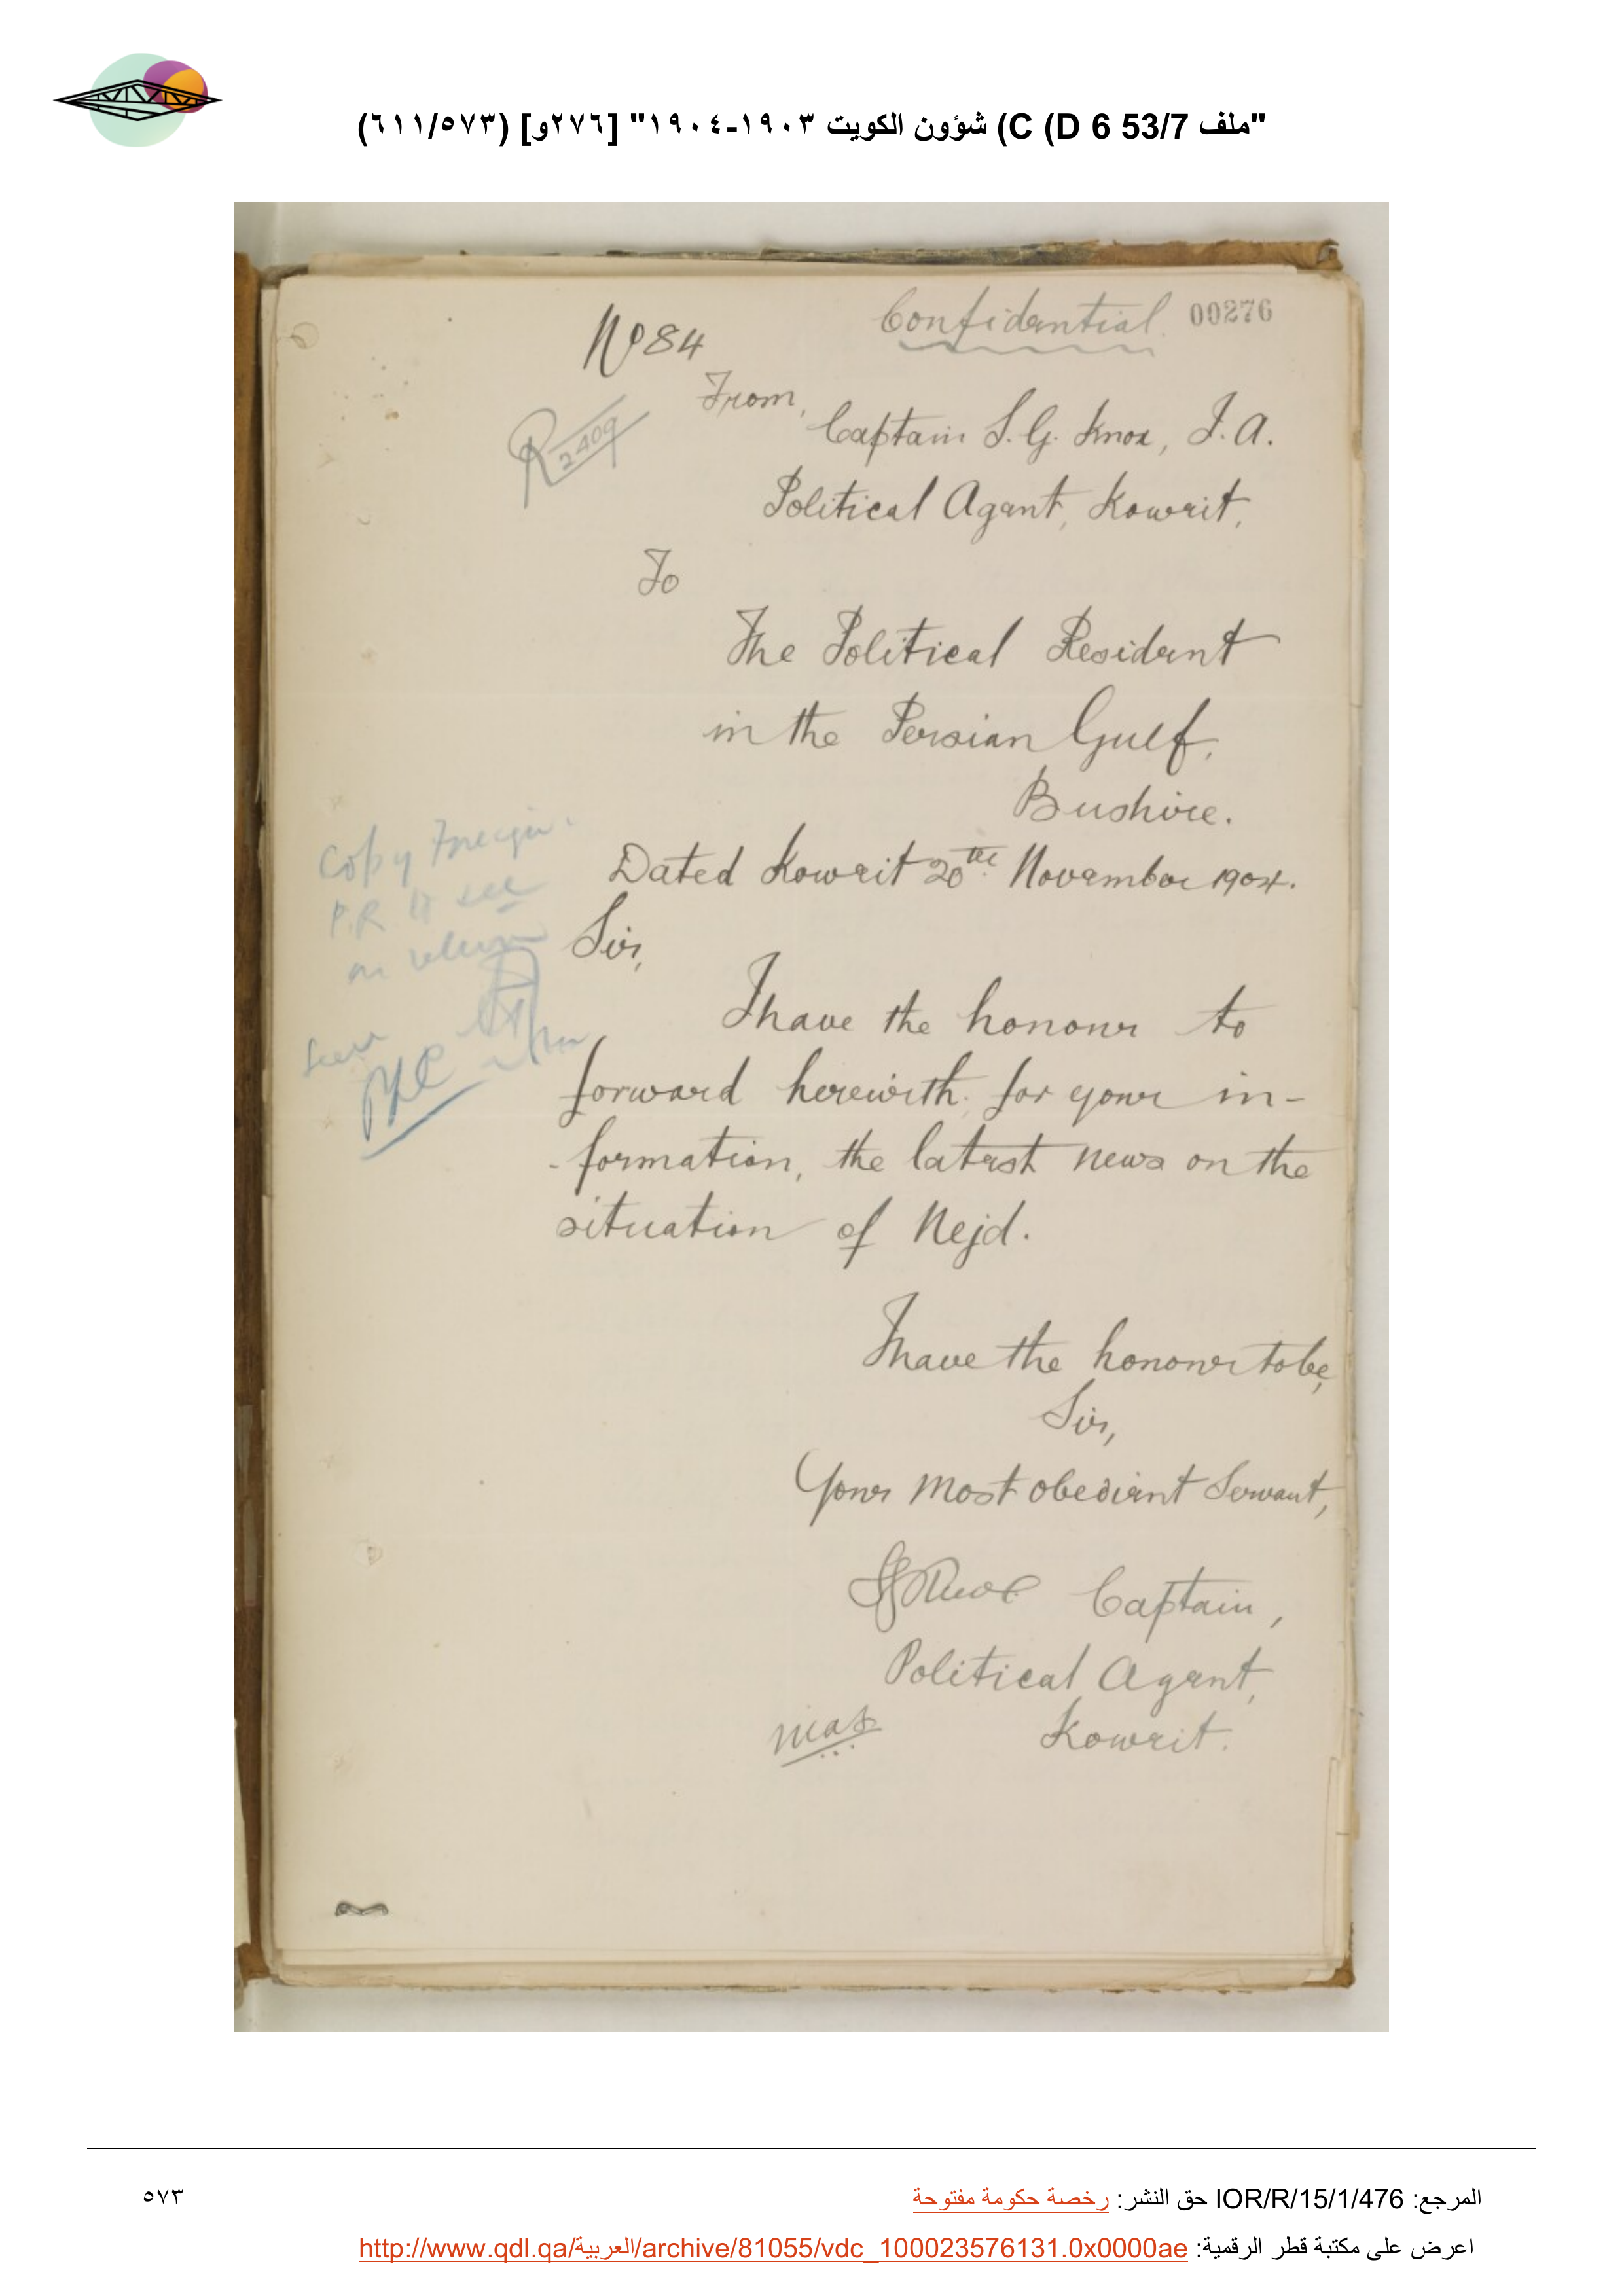 "ملف 53/7 C (D 6) شؤون الكويت ١٩٠٣-١٩٠٤" [٢٧٦و] (٦١١/٥٧٣)
Confidential 00276
No 84
R 2409
From,
Captain S. G. Knox, I. A.
Political Agent, Koweit,
To
The Political Resident
in the Persian Gulf,
Bushire.
Dated Koweit 20th November 1904.
Copy Foreign.
P.R to see
on return
Sir,
I have the honour to
forward herewith for your in-
-formation, the latest news on the
situation of Nejd.
I have the honour to be,
Sir,
Your most obedient Servant,
SGKnox Captain,
Political Agent,
Koweit.
المرجع: IOR/R/15/1/476 حق النشر: رخصة حكومة مفتوحة
٥٧٣
اعرض على مكتبة قطر الرقمية: http://www.qdl.qa/العربية/archive/81055/vdc_100023576131.0x0000ae